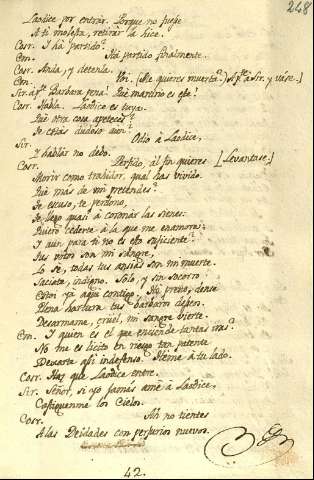 248
Laodice por entrar. Porque no fuese
A ti molesta, retirar la hice.
Cosr. I ha partido?
Em. Há partido finalmente.
Cosr. Anda, y detenla.
Em. Voi. (Me quieres muerta?) Ap.te á Sr. y vase.]
Sir. ap.te Barbara pena! Qué martirio es este!
Cosr. Habla. Laodice es tuya.
Qué otra cosa apeteces?
Te estás dudoso aun?
Sir. Odio à Laodice,
I hablár no debo.
Cosr. Perfido, al fin quieres [Levantase.]
Morir como traidor, qual has vivido.
Qué más de mi pretendes?
Te escuso, te perdono,
Te llego quasi à coronár las sienes:
Quiero cederte à la que me enamora;
I aun para ti no es esto suficiente?
Tus votos son mi sangre,
Lo se, todas tus ansias son mi muerte.
Saciate, indigno. Solo, y sin socorro
Estoi ya aqui contigo. Há previo, dense
Plena hartura tus barbaros deseos.
Desarmame, cruel, mi sangre vierte.
Em. I quien es el que enciende tantas iras?
No me es licito en riesgo tan patente
Dexarte asi indefenso. Heme à tu lado.
Cosr. Haz que Laodice entre.
Sir. Señor, si yo jamás amè à Laodice,
Castiguenme los Cielos.
Cosr. Ah no tientes
A las Deidades con perjurios nuevos.
42.